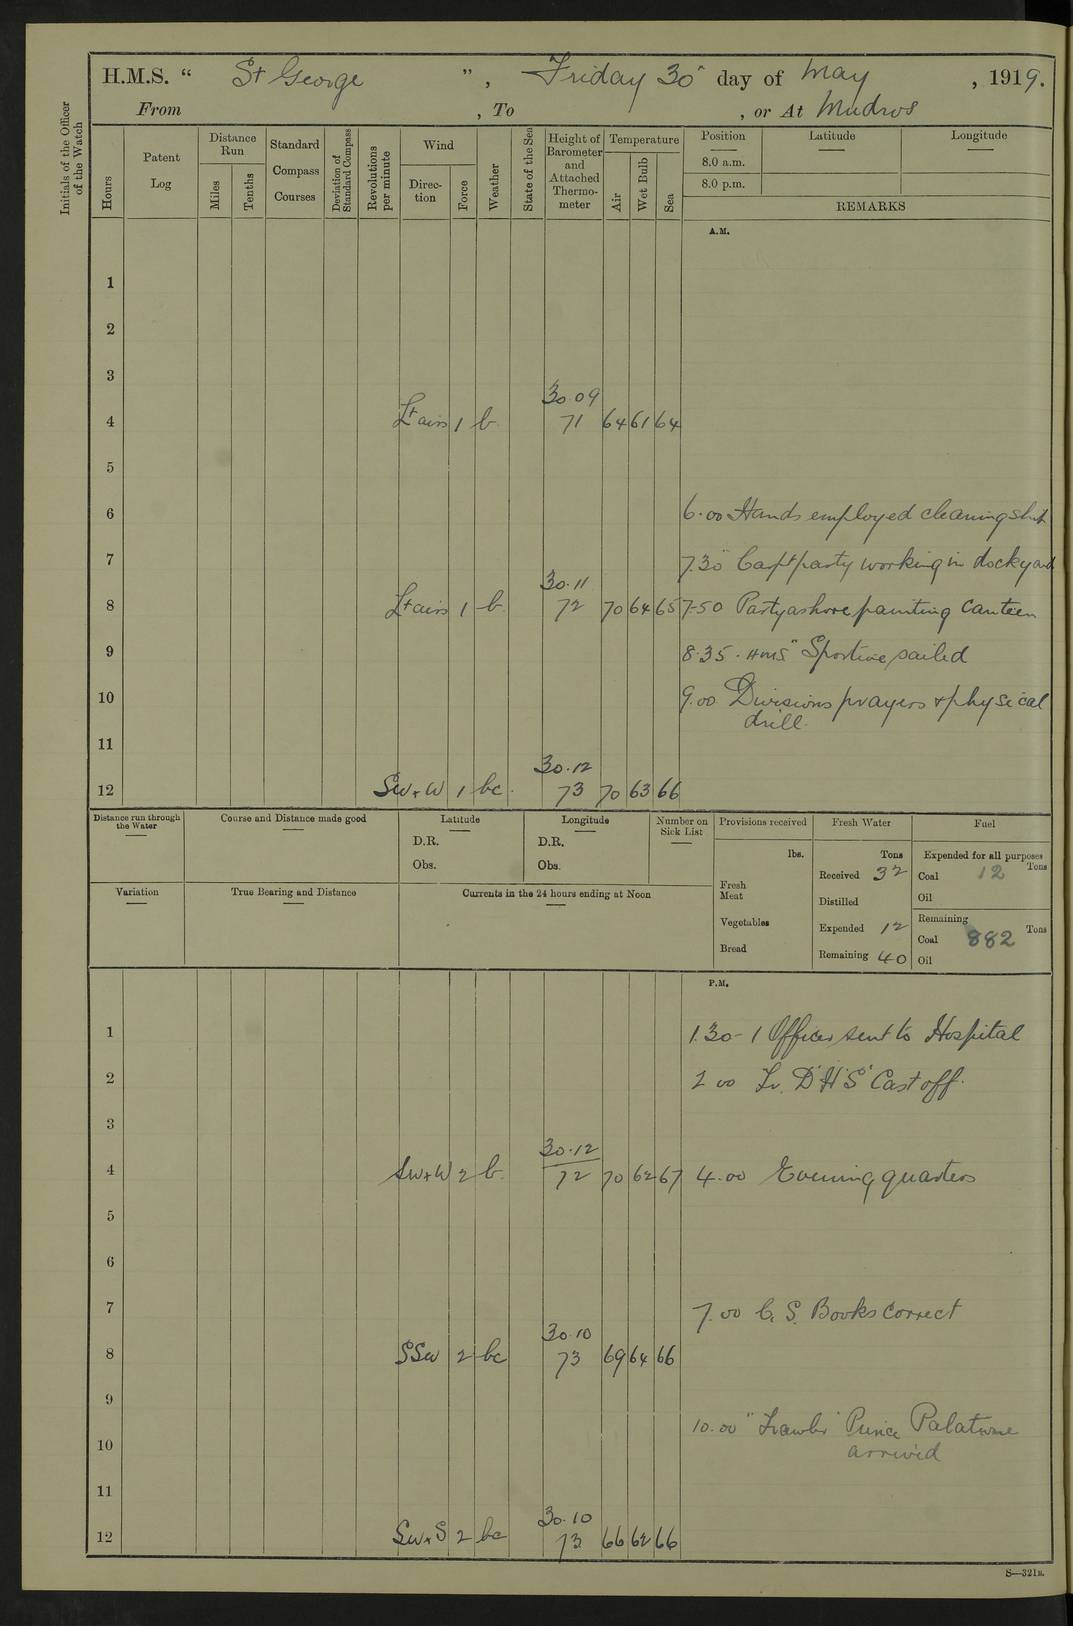 H.M.S. “ St George ”, Friday 30th day of May, 1919.
From , To , or At Mudros
Initials of the Officer of the Watch
Hours
Patent Log
Distance Run
Miles
Tenths
Standard Compass Courses
Deviation of Standard Compass
Revolutions per minute
Wind
Direction
Force
Weather
State of the Sea
Height of Barometer and Attached Thermometer
Temperature
Air
Wet Bulb
Sea
Position Latitude Longitude
8.0 a.m.
8.0 p.m.
REMARKS
A.M.
1
2
3
30.09
4 Lt airs 1 b. 71 64 61 64
5
6 6.00 Hands employed cleaning ship
7 7.30 Capt party working in dockyard
30.11
8 Lt airs 1 b. 72 70 64 65 7-50 Party ashore painting Canteen
9 8.35. HMS "Sportive sailed
10 9.00 Divisions prayers + physical
drill.
11
30.12
12 SW x W 1 bc. 73 70 63 66
Distance run through the Water
Course and Distance made good
Latitude
D.R.
Obs.
Longitude
D.R.
Obs.
Number on Sick List
Provisions received
lbs.
Fresh Meat
Vegetables
Bread
Fresh Water
Tons
Received 32
Distilled
Expended 12
Remaining 40
Fuel
Expended for all purposes
Coal 12 Tons
Oil
Remaining
Coal 882 Tons
Oil
Variation
True Bearing and Distance
Currents in the 24 hours ending at Noon
P.M.
1 1.30 - 1 Officer sent to Hospital
2 2 00 Lr. "D H S" Cast off.
3
30.12
4 SW x W 2 b. 72 70 62 67 4.00 Evening quarters
5
6
7 7.00 C. S. Books Correct
30.10
8 SSW 2 bc 73 69 64 66
9
10.00 "Trawler Prince Palatine
10 arrived
11
30.10
12 SW x S 2 bc 73 66 62 66
S—321B.